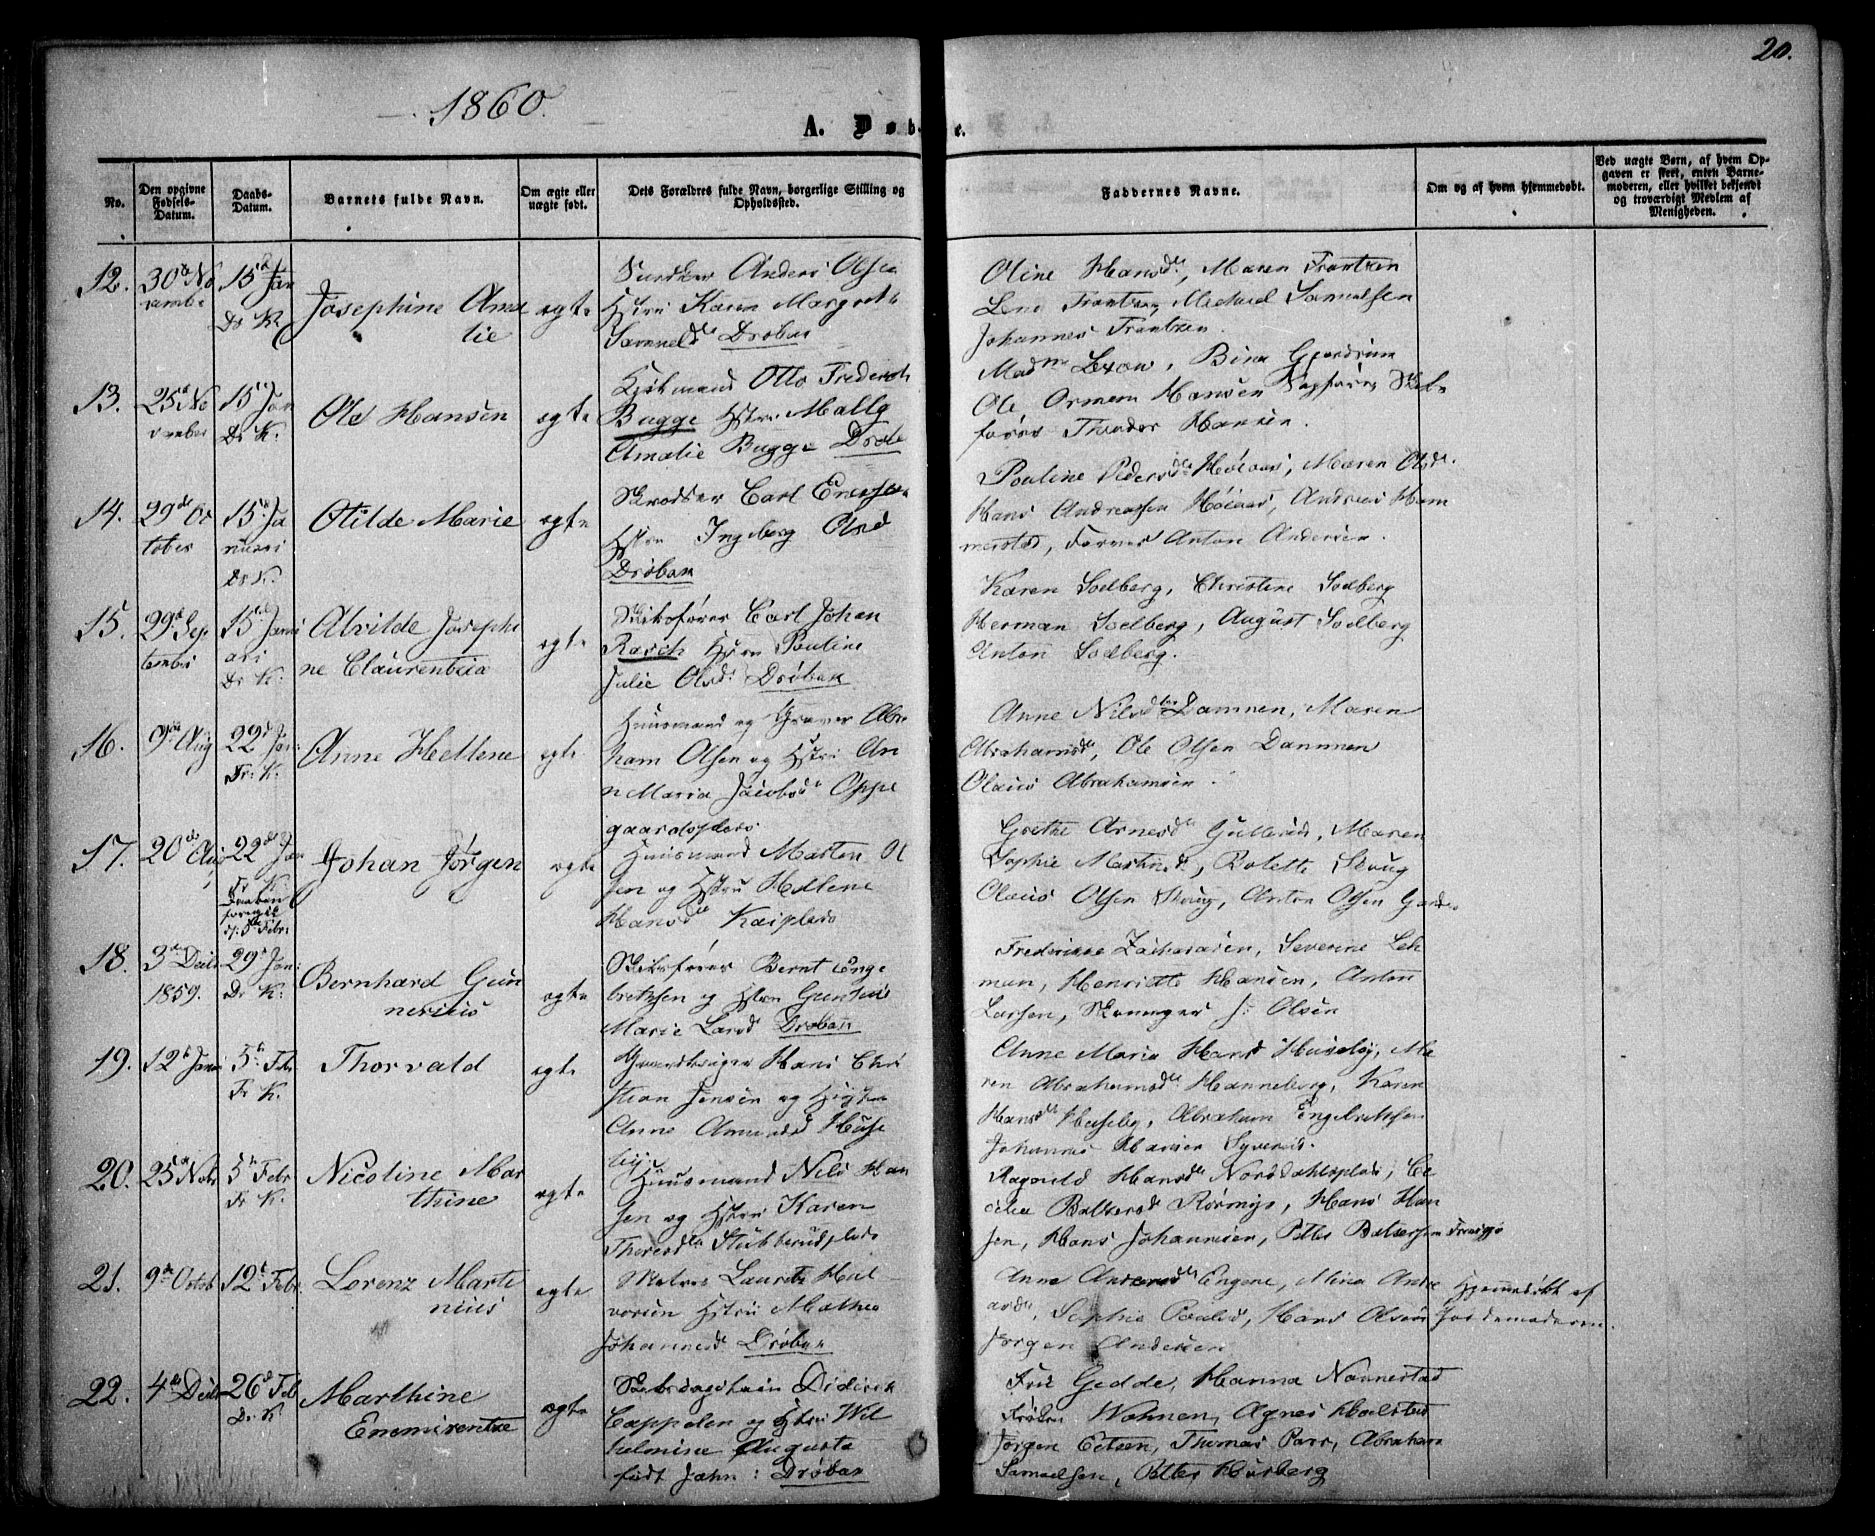 20.
1860.
A. Døbte.
No.
Den opgivne Fødsels-Datum.
Daabs-Datum.
Barnets fulde Navn.
Om ægte eller uægte født.
Dets Forældres fulde Navn, borgerlige Stilling og Opholdssted.
Faddernes Navne.
Om og af hvem hjemmedøbt.
Ved uægte Børn, af hvem Opgaven er skeet, enten Barnemoderen, eller hvilket bekjendt og troværdigt Medlem af Menigheden.
12.
30te November
15d Jan
Dr K.
Josephine Amalie
egte
Anders Olsen
Hstru Karen Margrete
Samuelsd Drøbak
Oline Hansdr, Maren Frantzen
Lene Frantzen, Michael Samuelsen
Johannes Frantzen.
13.
25d November
15d Jan
Dr K.
Ole Hansen
egte
Kjøbmand Otto Frederik
Bugge Hstru Mally
Amalie Bugge Drøbak
Madme Lexow, Bina Gjerdrum
Ole Ormem Hansen
Theodor Hansen.
14.
29de October
15d Januari
Dr K.
Otilde Marie
egte
Skrædder Carl Ericksen
Hstru Ingeborg Olsd
Drøbak
Pouline Pedersdr Høiaas, Maren Olsdr.
Hans Andreassen Høiaas, Andreas Hammerstad, Farver Anton Andersen.
15.
29d September
15d Januari
Dr K.
Alvilde Josephine Claurentia
egte
Skibsfører Carl Johan
Rasch Hstru Pouline
Julie Olsd. Drøbak
Karen Sodberg, Christine Sodberg
Herman Sodberg, August Sodberg
Anton Sodberg.
16.
9de Aug
22d Jan.
Fr. K.
Anne Hellene
egte
Huusmand og Graver Abraham Olsen og Hstru Anne Maria Jacobsdr Oppegaardsplads
Anne Nilsdtr Dammen, Maren
Abrahamsdr, Ole Olsen Dammen
Olaus Abrahamsen.
17.
20de Aug
22de Jan
Fr K.
Johan Jørgen
egte
Huusmand Morten Olsen og Hstru Hellene
Hansdr
Grethe Arnesdr Gullerud, Maren
Sophie Martinsdr, Bolette Skoug
Olaus Olsen Skoug, Anton Olsen
18.
3de Decbr
1859.
29d Jan:
Dr K:
Bernhard Gunnerius
egte
Skibsfører Bernt Engebretsen og Hstru
Marie Larsd Drøbak
Frederikke Zachariasen, Severine Lehman, Henriette Hansen, Anton
Larsen, Olsen
19.
12te Janr
5te Feb.
Fr K.
Thorvald
egte
Gaardbruger Hans Christian Jensen og Hstru
Anne Amundsd Huseby
Anne Maria Hansd Huseby, Maren Abrahamsdr Hanneborg, Karen
Hansdr Huseby, Abraham Engebretsen
Johannes Hansen Syverud.
20.
25de Nobr
5te Febr
Fr K.
Nicoline Marthine
egte
Huusmand Nils Hansen og Hstru Karen
Thoresdtr Stubberudplads
Ragnild Hansdr Nordahlsplads,
Baltersd Rørmyr, Hans Hansen, Hans Johannesen, Petter Baltersen
21.
9de Octob
12te Febr.
Lorenz Martinius
egte
Matros Laurits Halvorsen Hstru Mathea
Johannesd Drøbak
Anne Andersdr Engene, Mina Andreasdr, Sophie Poulsd, Hans Olsen
Jørgen Andersen
Hjemmedøbt af
Jordemoderen.
22.
4de Decbr
26d Feb
Dr. K
Marthine
egte
Diderick
Cappelen og Hstru Wilhelmine Augusta
født Jahn: Drøbak
Frk Gedde, Hanna Nannestad
Frøken Wohnen, Agnes Halsted
Jørgen Eetsen, Thomas Parr, Abraham
Samuelsen, Petter Hurberg